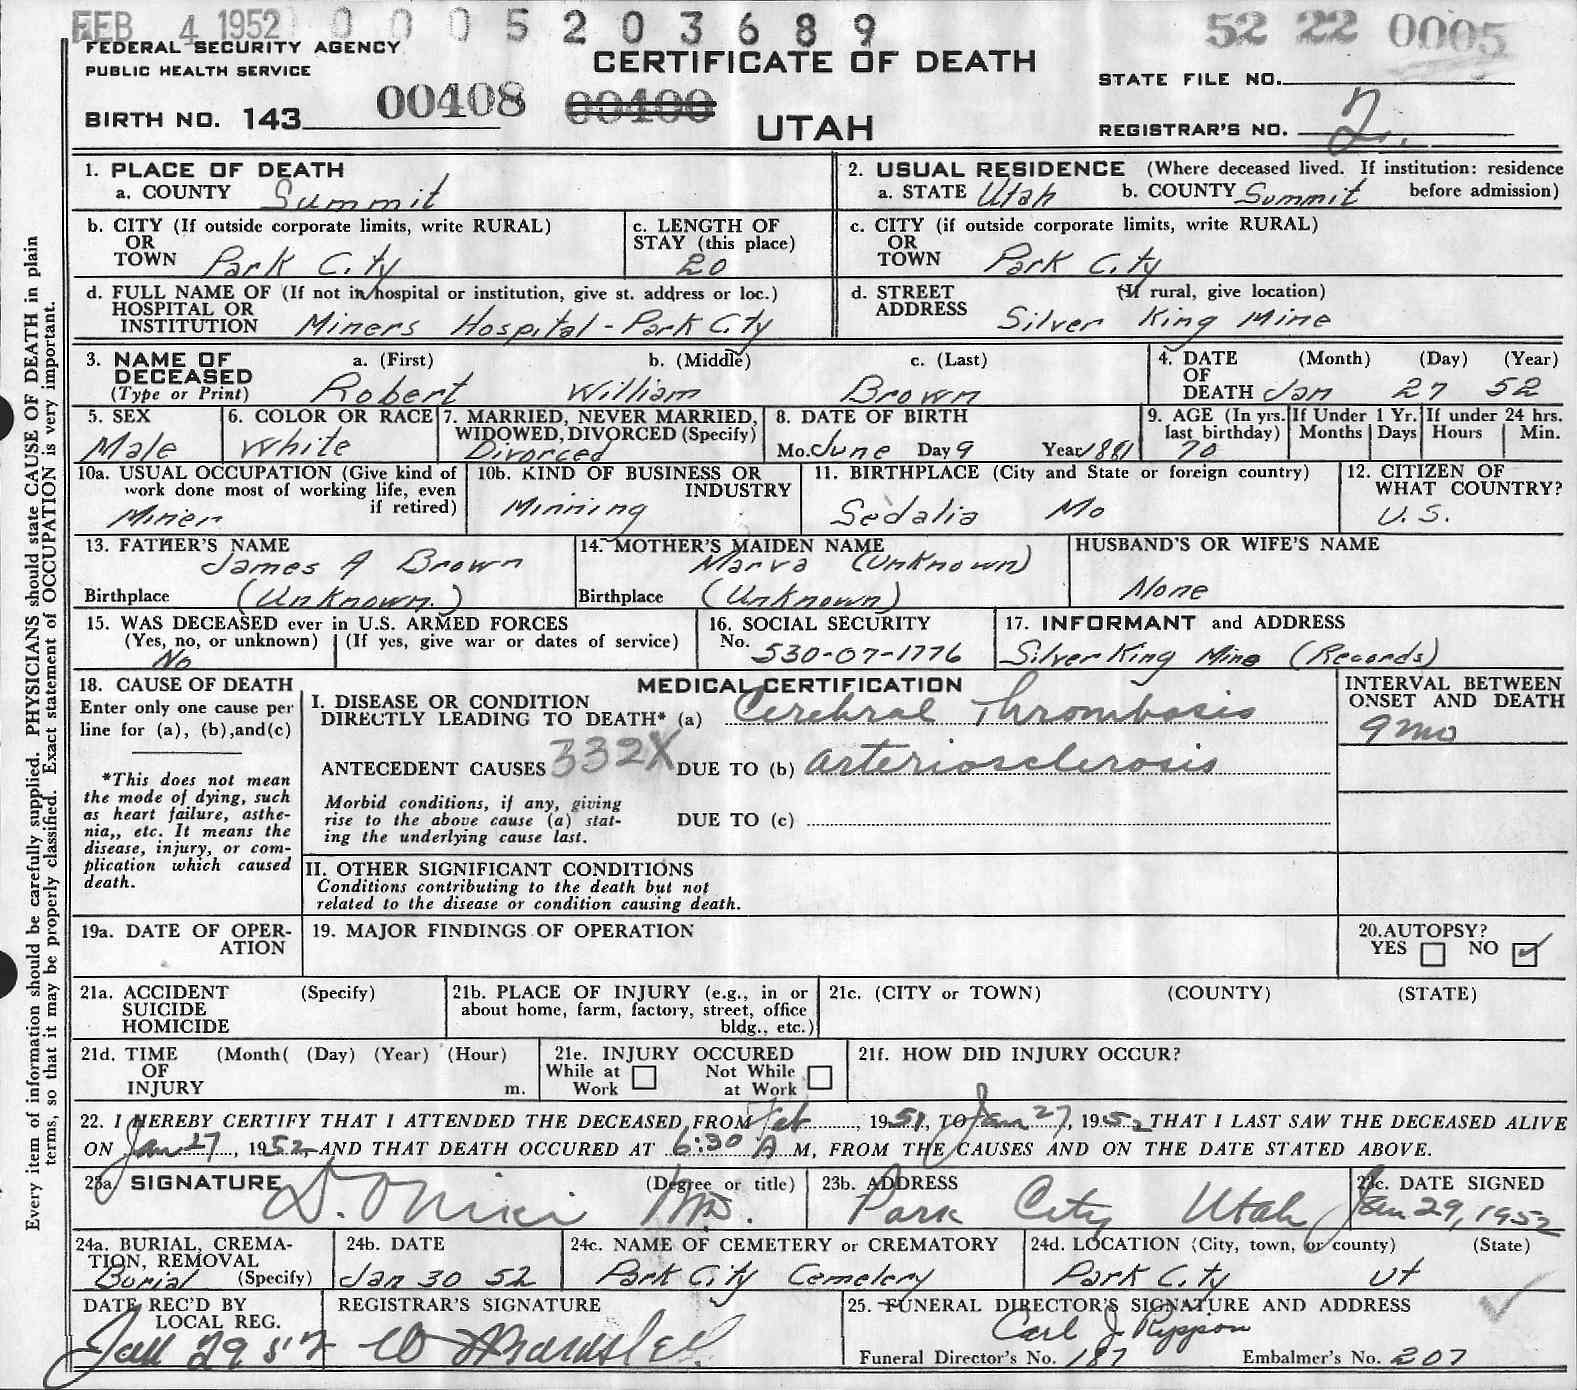 FEB 4 1952 0005203689 52 22 0005
FEDERAL SECURITY AGENCY
PUBLIC HEALTH SERVICE
CERTIFICATE OF DEATH
STATE FILE NO.
BIRTH NO. 143 00408 00400
UTAH
REGISTRAR'S NO. 2.
1. PLACE OF DEATH
a. COUNTY Summit
2. USUAL RESIDENCE (Where deceased lived. If institution: residence before admission)
a. STATE Utah b. COUNTY Summit
b. CITY (If outside corporate limits, write RURAL)
OR
TOWN Park City
c. LENGTH OF
STAY (this place)
20
c. CITY (if outside corporate limits, write RURAL)
OR
TOWN Park City
d. FULL NAME OF (If not in hospital or institution, give st. address or loc.)
HOSPITAL OR
INSTITUTION Miners Hospital - Park City
d. STREET (If rural, give location)
ADDRESS Silver King Mine
3. NAME OF a. (First) b. (Middle) c. (Last)
DECEASED
(Type or Print) Robert William Brown
4. DATE (Month) (Day) (Year)
OF
DEATH Jan 27 52
5. SEX
Male
6. COLOR OR RACE
White
7. MARRIED, NEVER MARRIED,
WIDOWED, DIVORCED (Specify)
Divorced
8. DATE OF BIRTH
Mo. June Day 9 Year 1881
9. AGE (In yrs. last birthday)
70
If Under 1 Yr.
Months Days
If under 24 hrs.
Hours Min.
10a. USUAL OCCUPATION (Give kind of
work done most of working life, even
if retired)
Miner
10b. KIND OF BUSINESS OR
INDUSTRY
Minning
11. BIRTHPLACE (City and State or foreign country)
Sedalia Mo
12. CITIZEN OF
WHAT COUNTRY?
U. S.
13. FATHER'S NAME
James A Brown
Birthplace (Unknown.)
14. MOTHER'S MAIDEN NAME
Marva (Unknown)
Birthplace (Unknown)
HUSBAND'S OR WIFE'S NAME
None
15. WAS DECEASED ever in U.S. ARMED FORCES
(Yes, no, or unknown) (If yes, give war or dates of service)
No
16. SOCIAL SECURITY
No. 530-07-1776
17. INFORMANT and ADDRESS
Silver King Mine (Records)
18. CAUSE OF DEATH
Enter only one cause per
line for (a), (b), and (c)
*This does not mean
the mode of dying, such
as heart failure, asthe-
nia,, etc. It means the
disease, injury, or com-
plication which caused
death.
MEDICAL CERTIFICATION
I. DISEASE OR CONDITION
DIRECTLY LEADING TO DEATH* (a) Cerebral Thrombosis
ANTECEDENT CAUSES 332X DUE TO (b) arteriosclerosis
Morbid conditions, if any, giving
rise to the above cause (a) stat-
ing the underlying cause last.
DUE TO (c)
INTERVAL BETWEEN
ONSET AND DEATH
9 mo
II. OTHER SIGNIFICANT CONDITIONS
Conditions contributing to the death but not
related to the disease or condition causing death.
19a. DATE OF OPER-
ATION
19. MAJOR FINDINGS OF OPERATION
20. AUTOPSY?
YES NO ✓
21a. ACCIDENT (Specify)
SUICIDE
HOMICIDE
21b. PLACE OF INJURY (e.g., in or
about home, farm, factory, street, office
bldg., etc.)
21c. (CITY or TOWN) (COUNTY) (STATE)
21d. TIME (Month( (Day) (Year) (Hour)
OF
INJURY m.
21e. INJURY OCCURED
While at Work Not While at Work
21f. HOW DID INJURY OCCUR?
22. I HEREBY CERTIFY THAT I ATTENDED THE DECEASED FROM Feb, 1951, TO Jan 27, 1952 THAT I LAST SAW THE DECEASED ALIVE
ON Jan 27, 1952 AND THAT DEATH OCCURED AT 6:30 A M, FROM THE CAUSES AND ON THE DATE STATED ABOVE.
23a. SIGNATURE (Degree or title)
MD.
23b. ADDRESS
Park City Utah
23c. DATE SIGNED
Jan 29, 1952
24a. BURIAL, CREMA-
TION, REMOVAL
Burial (Specify)
24b. DATE
Jan 30 52
24c. NAME OF CEMETERY or CREMATORY
Park City Cemetery
24d. LOCATION (City, town, or county) (State)
Park City Ut
DATE REC'D BY
LOCAL REG.
Jan 29 52
REGISTRAR'S SIGNATURE
25. FUNERAL DIRECTOR'S SIGNATURE AND ADDRESS
Carl J Rippon
Funeral Director's No. 187 Embalmer's No. 207
Every item of information should be carefully supplied. PHYSICIANS should state CAUSE OF DEATH in plain
terms, so that it may be properly classified. Exact statement of OCCUPATION is very important.